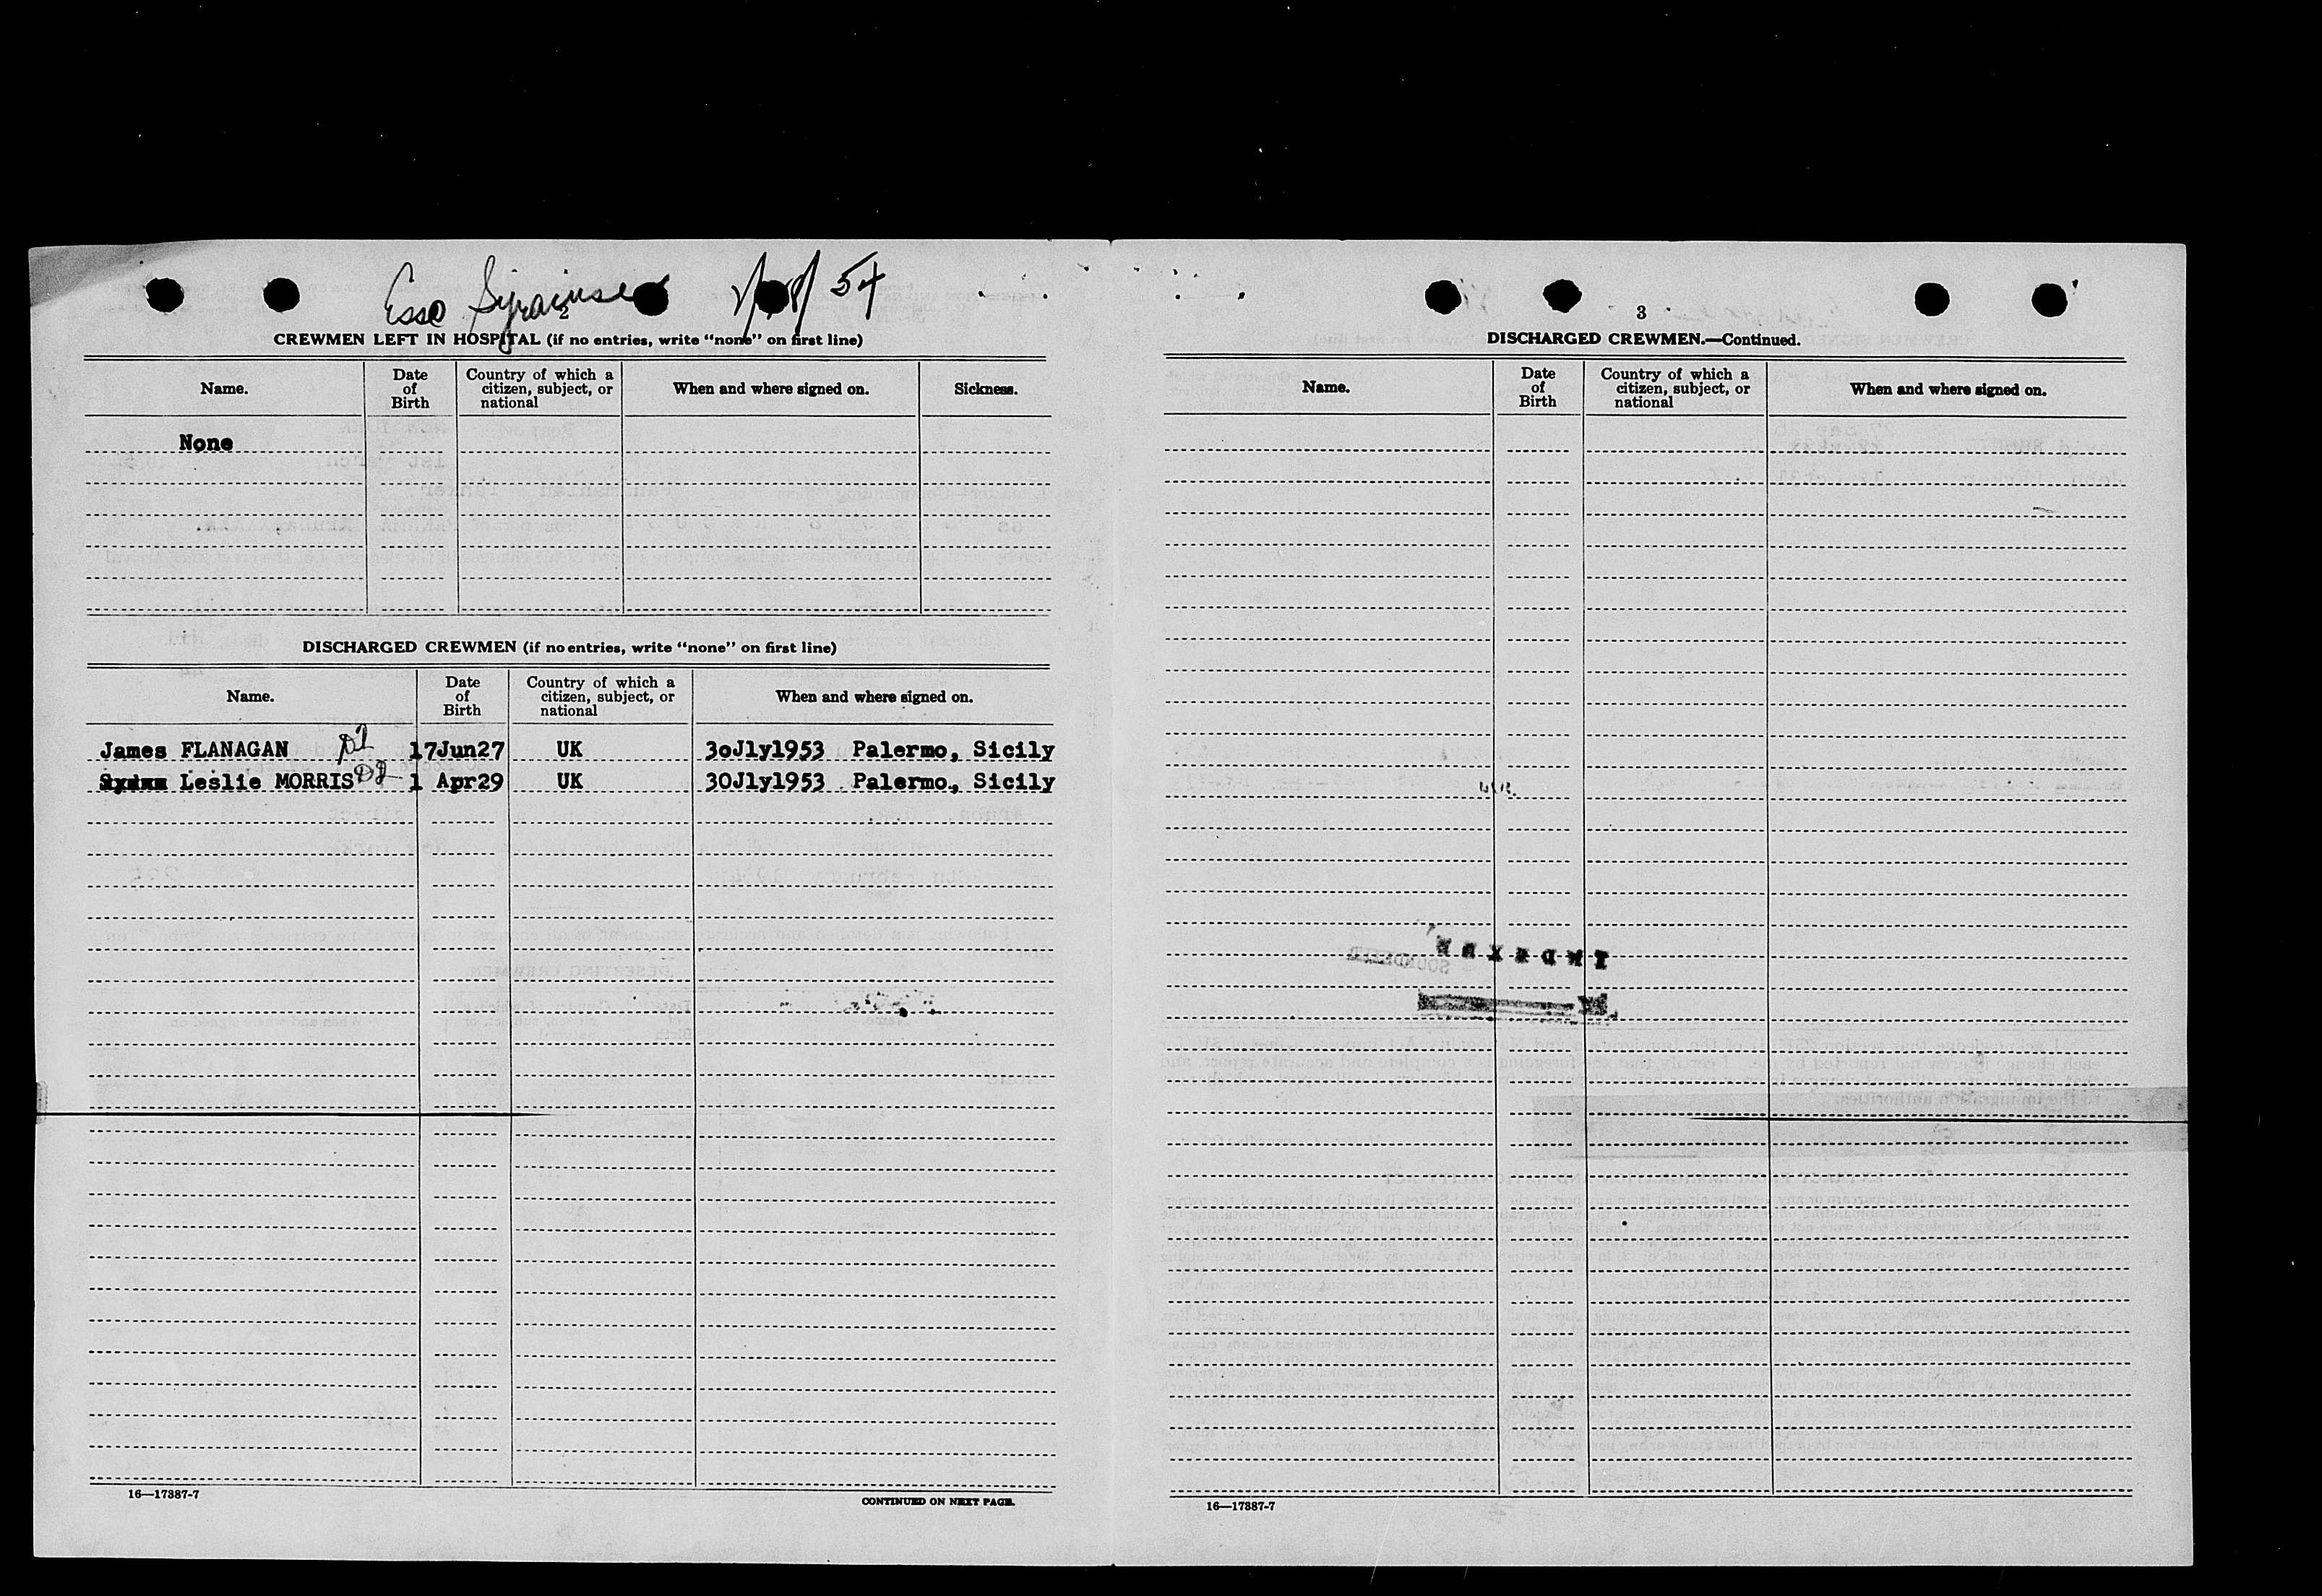 Esso Syracuse 2/18/54
2
CREWMEN LEFT IN HOSPITAL (if no entries, write "none" on first line)
Name.
Date of Birth
Country of which a citizen, subject, or national
When and where signed on.
Sickness.
None
DISCHARGED CREWMEN (if no entries, write "none" on first line)
Name.
Date of Birth
Country of which a citizen, subject, or national
When and where signed on.
James FLANAGAN 17Jun27 UK 3oJly1953 Palermo, Sicily
Leslie MORRIS 1 Apr29 UK 30Jly1953 Palermo, Sicily
16—17387-7
CONTINUED ON NEXT PAGE.
3
DISCHARGED CREWMEN.—Continued.
Name.
Date of Birth
Country of which a citizen, subject, or national
When and where signed on.
16—17387-7